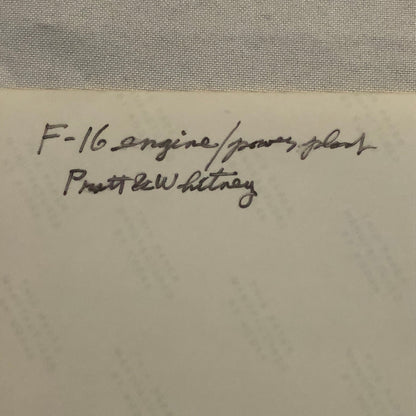 F-16 engine/power plant
Pratt & Whitney